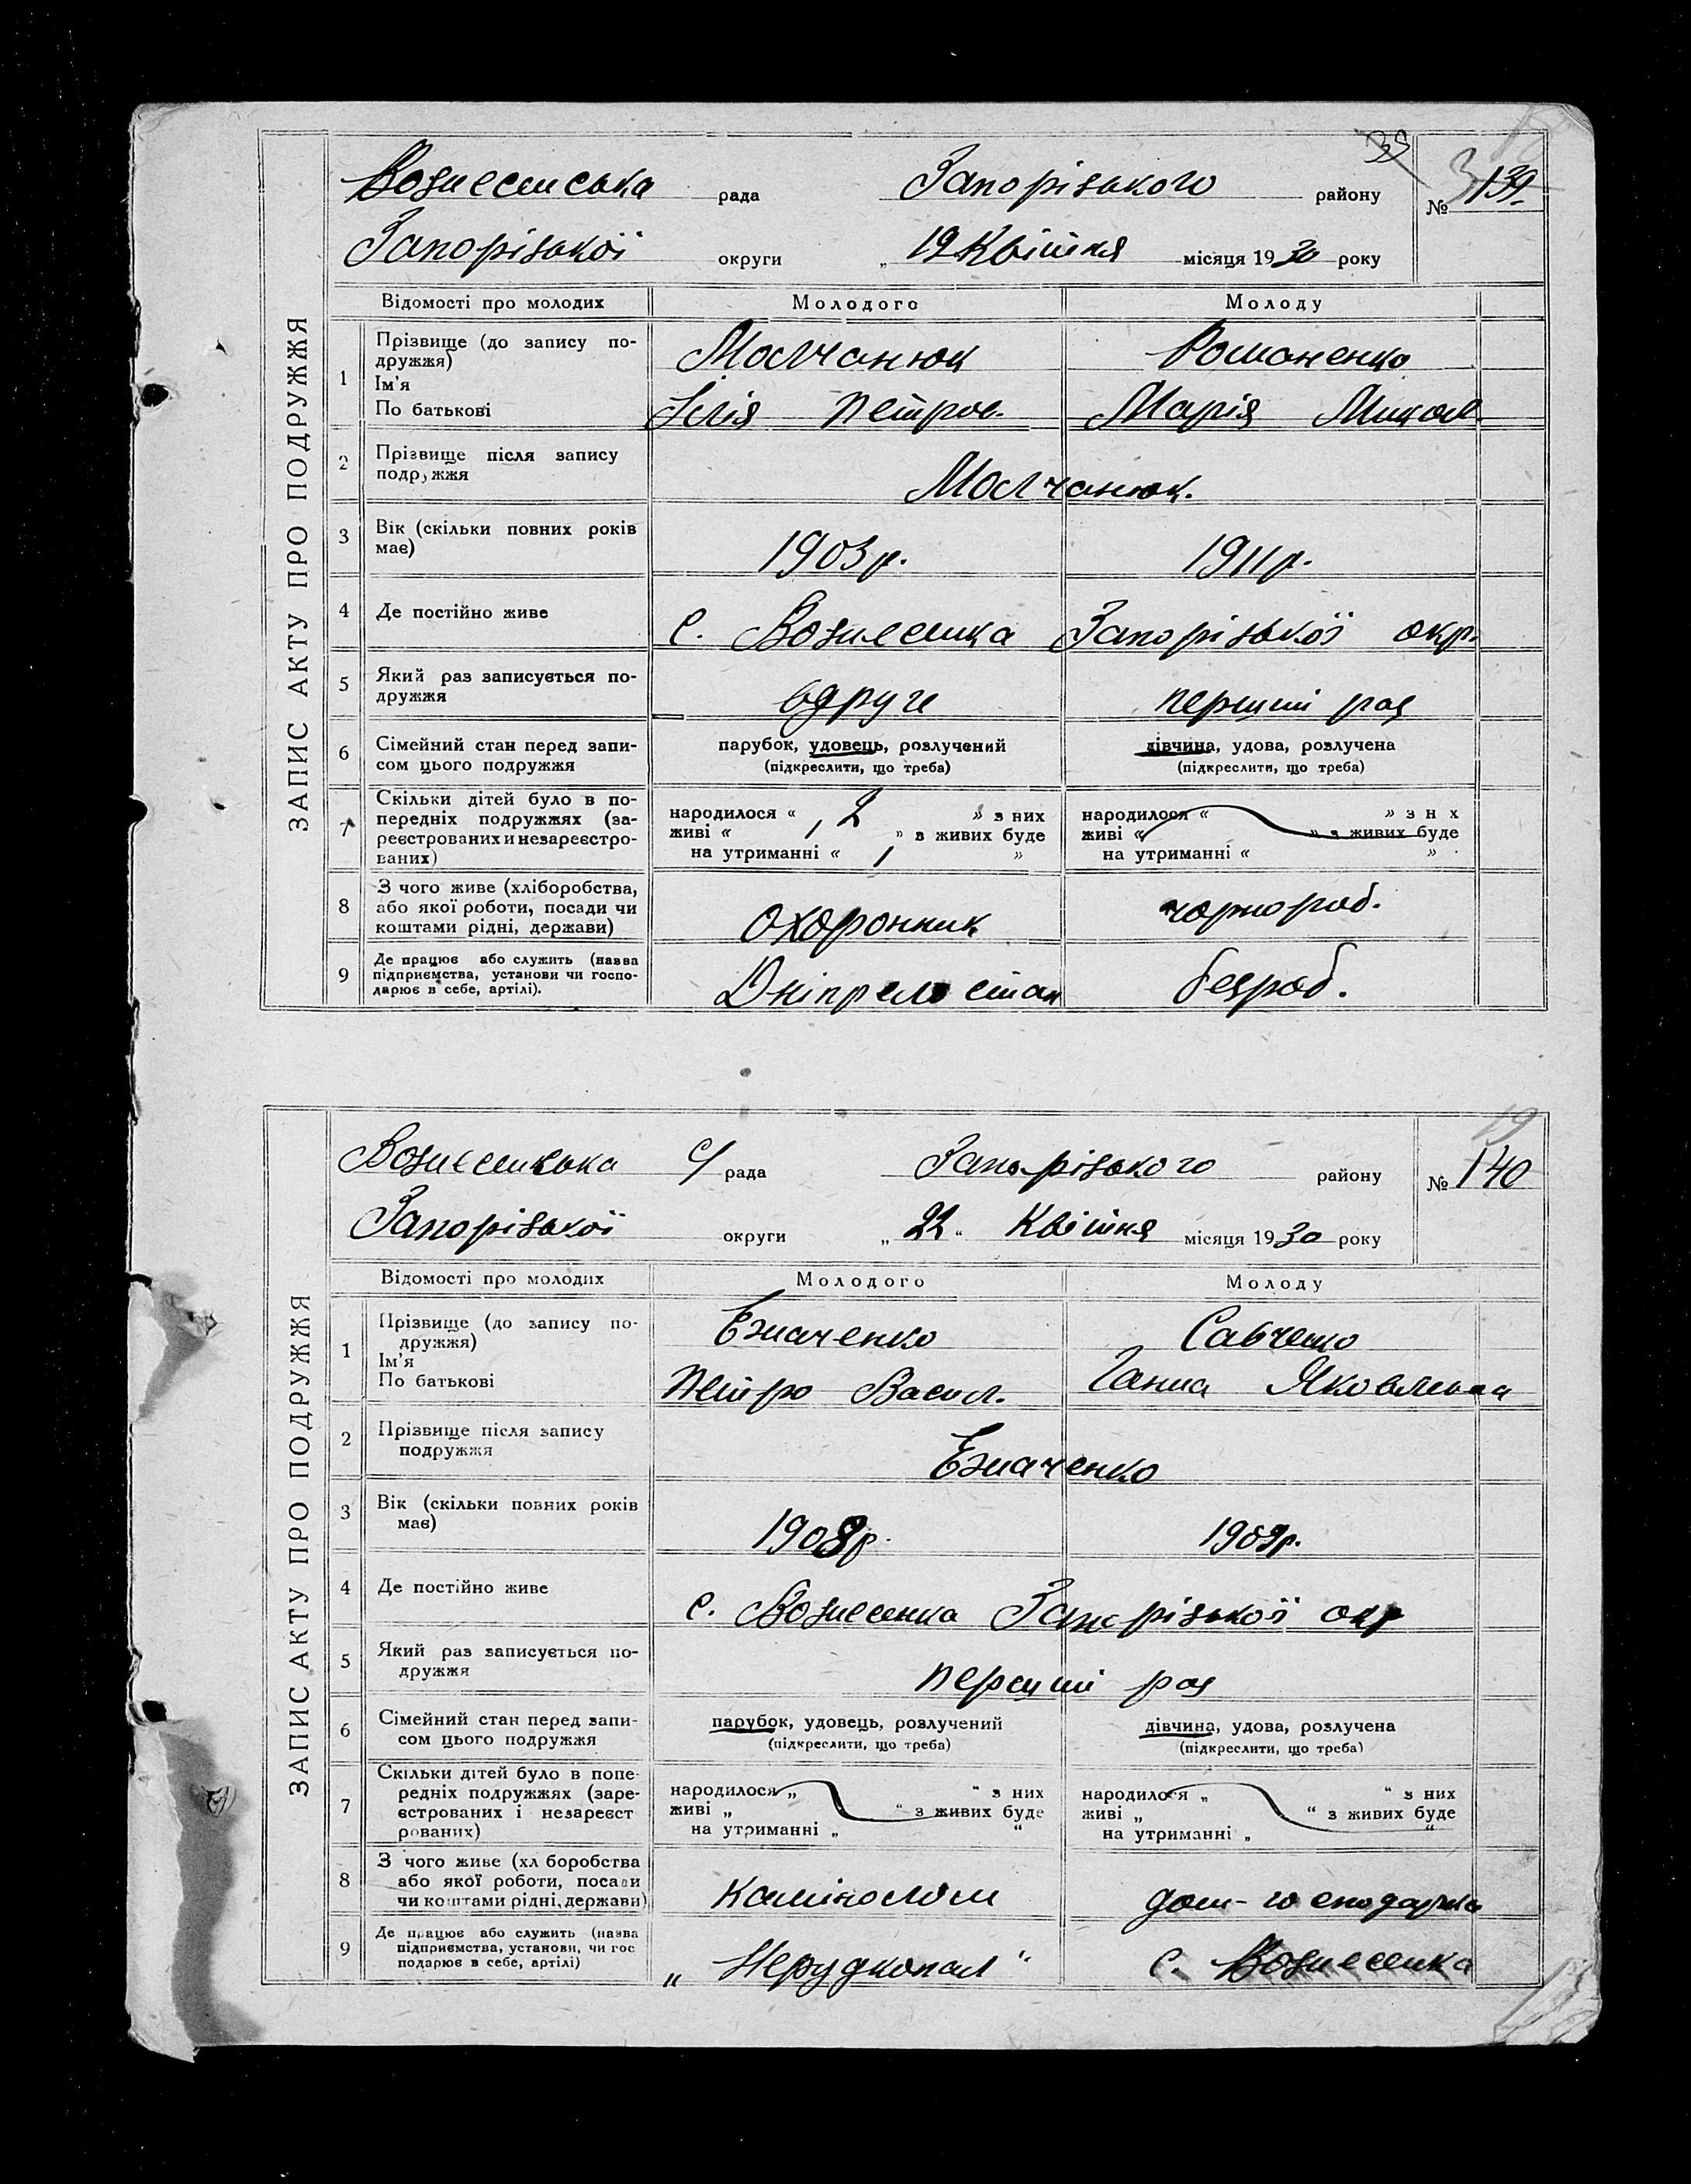 ЗАПИС АКТУ ПРО ПОДРУЖЖЯ
Вознесенська рада Запорізького району № 139
Запорізької округи „ 19 Квітня місяця 1930 року
Відомості про молодих Молодого Молоду
1 Прізвище (до запису по-
дружжя)
Ім'я
По батькові
Молчанюк Романенко
Ілія Петров. Марія Микол.
2 Прізвище після запису
подружжя
Молчанюк.
3 Вік (скільки повних років
має)
1903р. 1911р.
4 Де постійно живе с. Вознесенка Запорізької окр.
5 Який раз записується по-
дружжя
вдруге перший раз
6 Сімейний стан перед запи-
сом цього подружжя
парубок, удовець, розлучений
(підкреслити, що треба)
дівчина, удова, розлучена
(підкреслити, що треба)
7 Скільки дітей було в по-
передніх подружжях (за-
реєстрованих и незареєстро-
ваних)
народилося « 2 » з них
живі « 1 » з живих буде
на утриманні « 1 »
народилося « » з н х
живі « » з живих буде
на утриманні « »
8 З чого живе (хліборобства,
або якої роботи, посади чи
коштами рідні, держави)
охоронник чорнороб.
9 Де працює або служить (назва
підприємства, установи чи госпо-
дарює в себе, артілі).
безроб.
ЗАПИС АКТУ ПРО ПОДРУЖЖЯ
Вознесенська с/рада Запорізького району № 140
Запорізької округи „ 22 “ Квітня місяця 1930 року
Відомості про молодих Молодого Молоду
1 Прізвище (до запису по-
дружжя)
Ім'я
По батькові
Савченко
Петро Васил. Ганна Яковлевна
2 Прізвище після запису
подружжя
3 Вік (скільки повних років
має)
1908р. 1909р.
4 Де постійно живе с. Вознесенка Запорізької окр
5 Який раз записується по-
дружжя
перший раз
6 Сімейний стан перед запи-
сом цього подружжя
парубок, удовець, розлучений
(підкреслити, що треба)
дівчина, удова, розлучена
(підкреслити, що треба)
7 Скільки дітей було в попе-
редніх подружжях (заре-
єстрованих і незареєст
рованих)
народилося „ “ з них
живі „ “ з живих буде
на утриманні „ “
народилося „ “ з них
живі „ “ з живих буде
на утриманні „ “
8 З чого живе (хл боробства
або якої роботи, посади
чи коштами рідні, держави)
камінолом дом-господарка
9 Де працює або служить (назва
підприємства, установи, чи гос
подарює в себе, артілі)
„ Нерудкопал “ с. Вознесенка